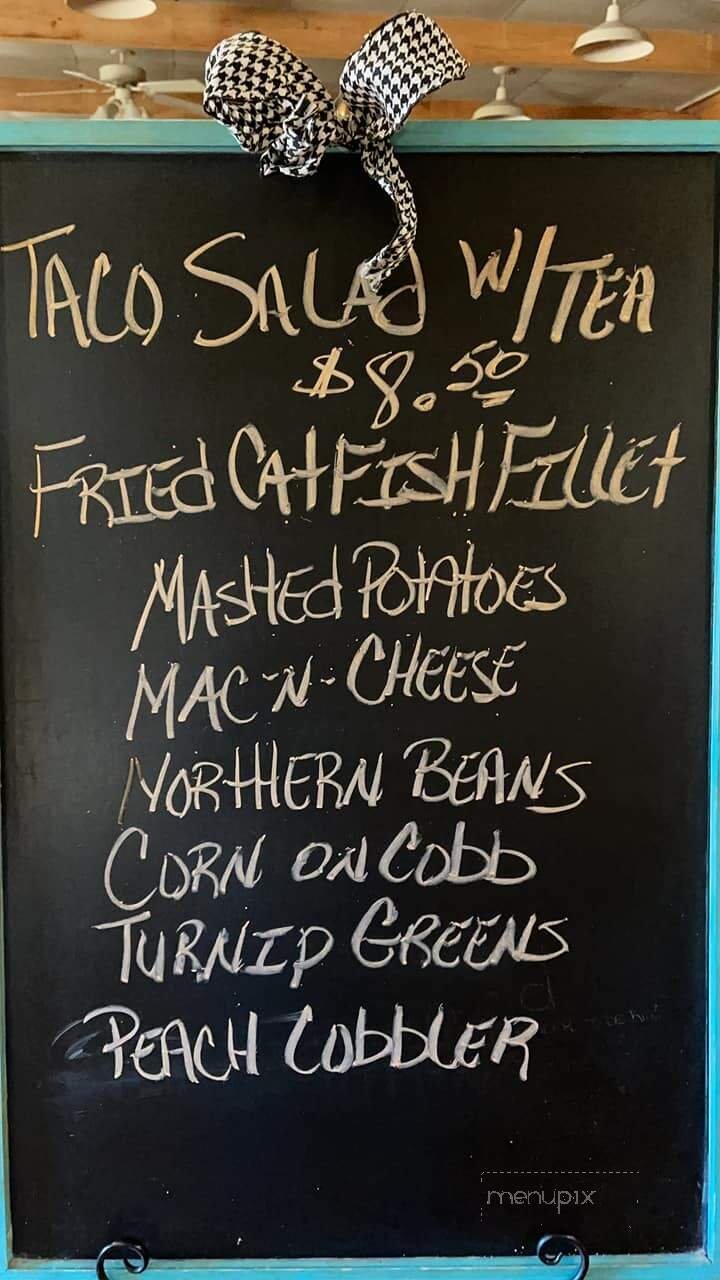 TACO SALAd W/TEA
$8.50
FRIEd CAtFISH FILLEt
MASHEd POtAtOES
MAC-N-CHEESE
NORtHERN BEANS
CORN ON CObb
TURNIP GREENS
PEACH CObbLER
menupix